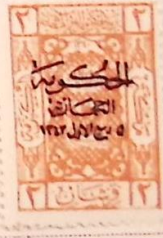 ٢ ٢
الحكومة
الحجازية
٥ ربيع الاول ١٣٤٣
٢ قرشان ٢